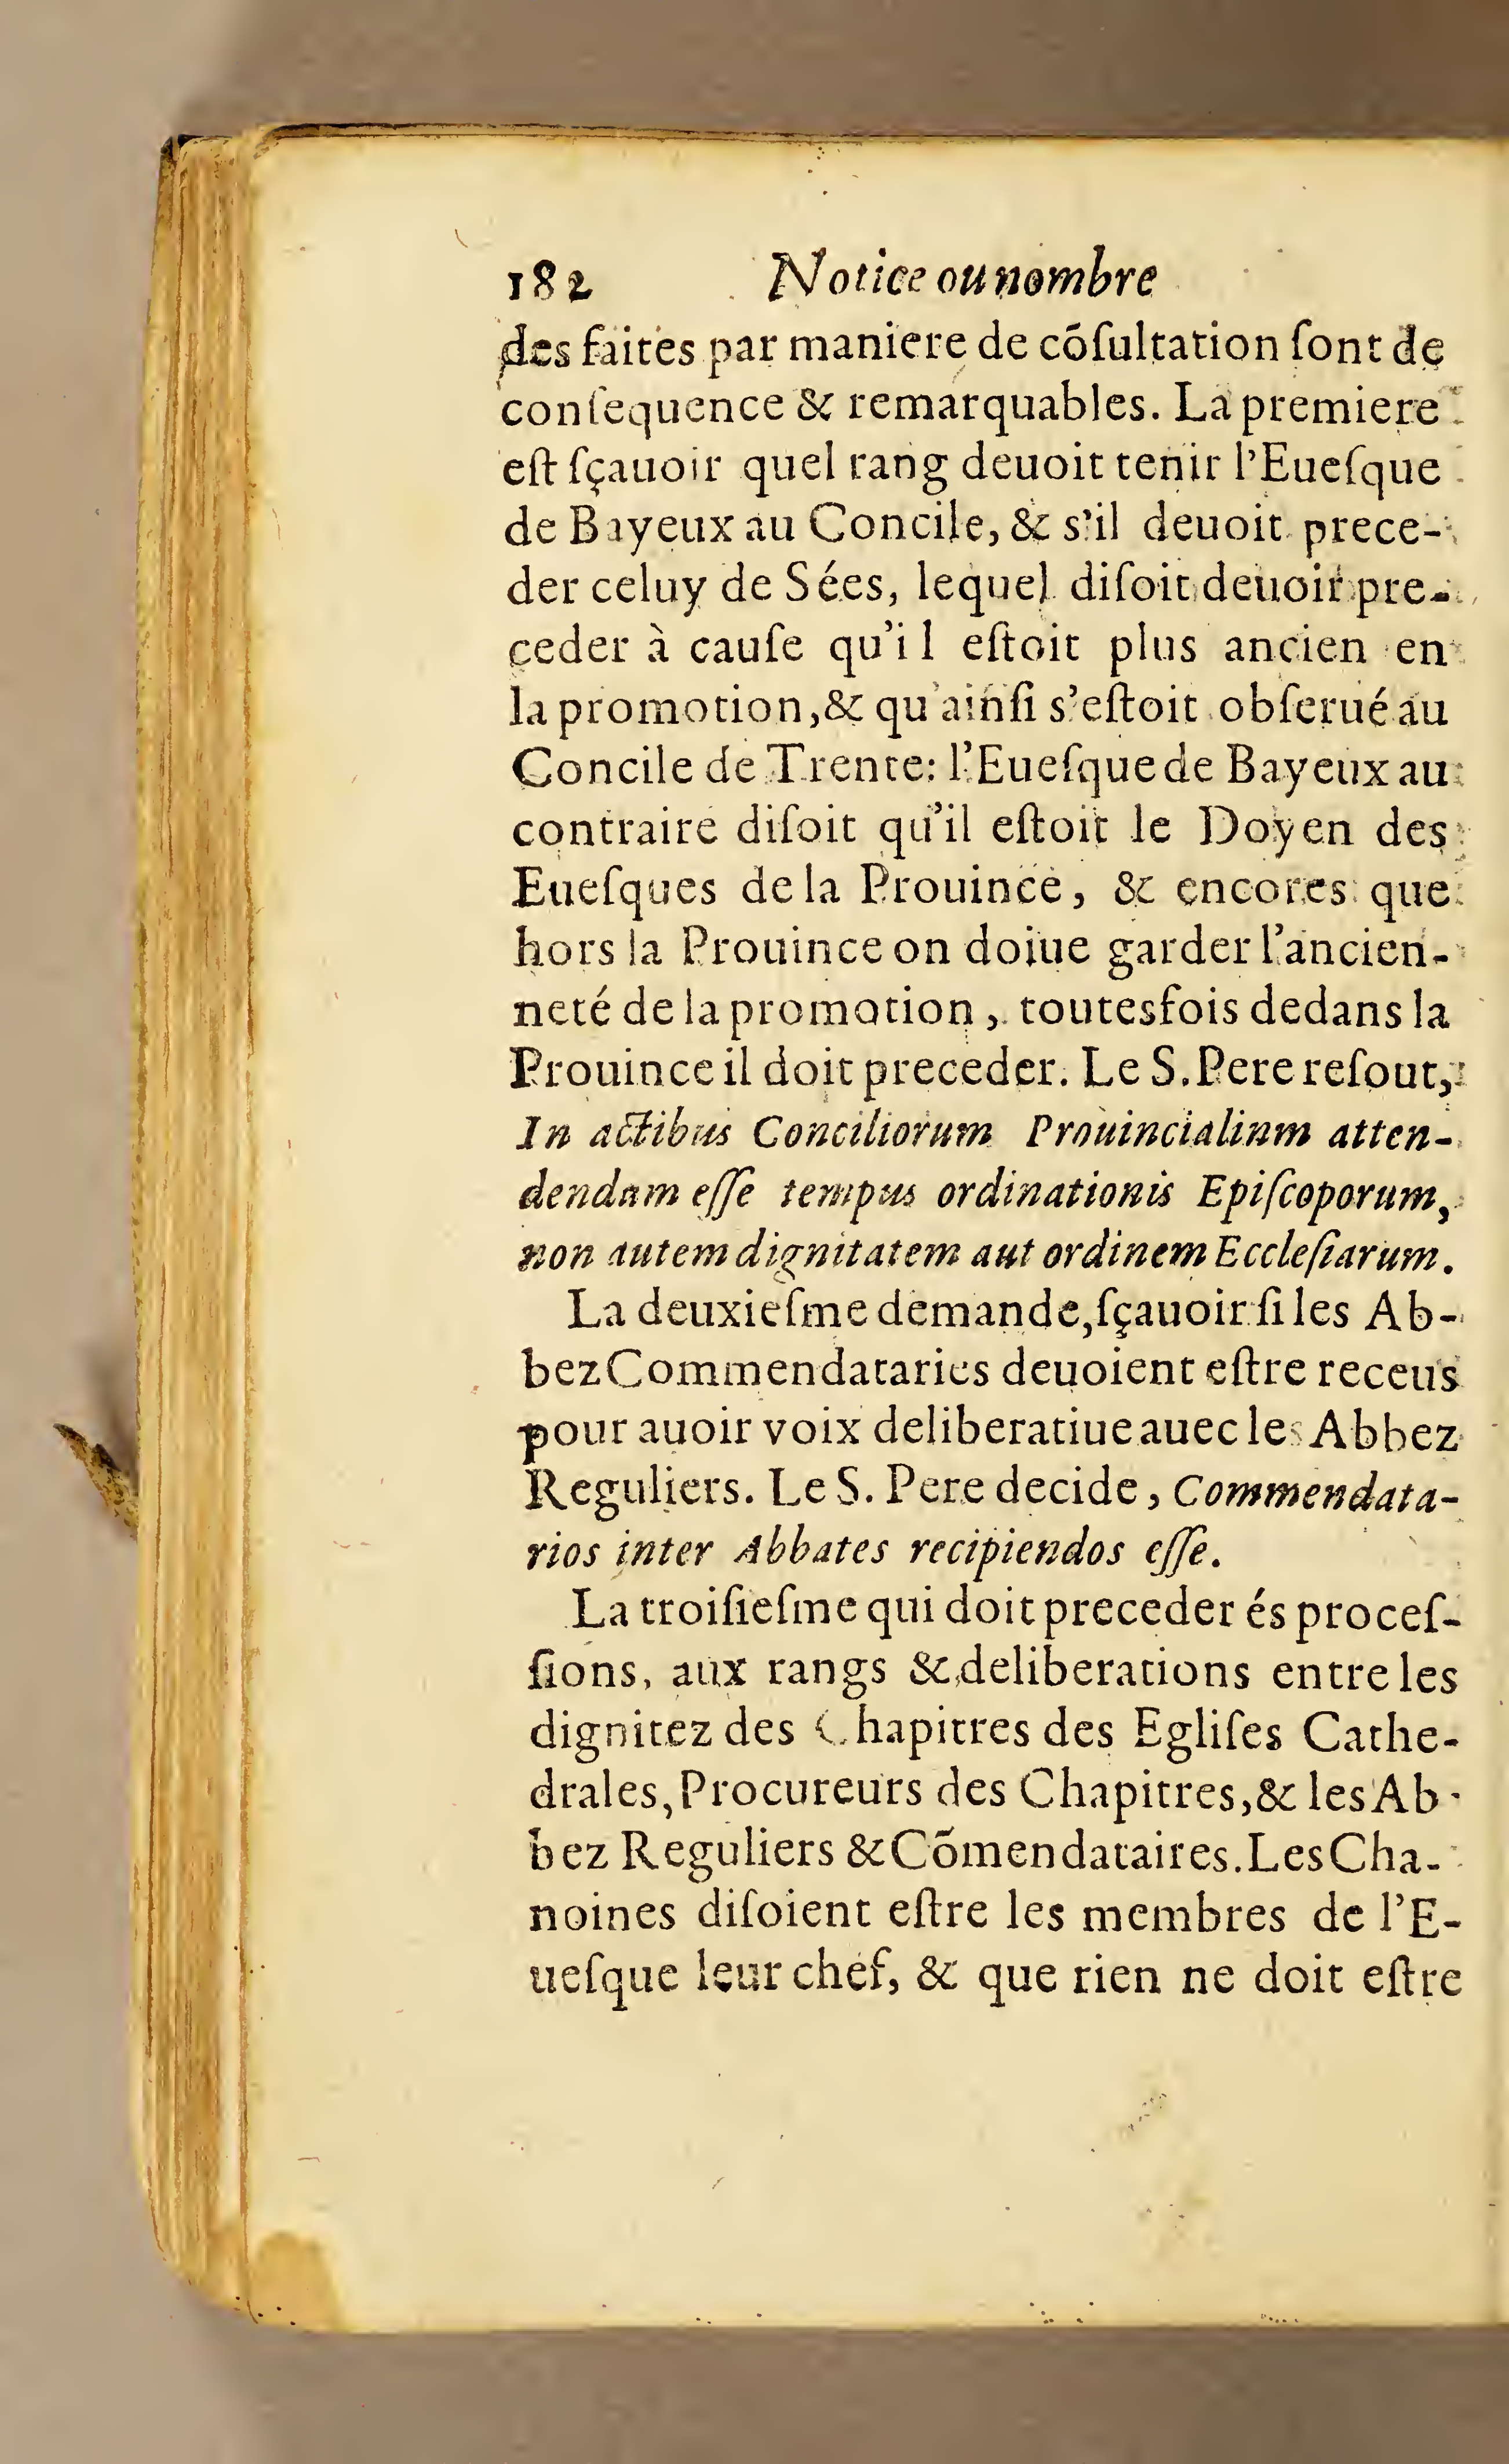 182 Notice ou nombre
des faites par maniere de cõſultation ſont de
conſequence & remarquables. La premiere
eſt ſçauoir quel rang deuoit tenir l'Eueſque
de Bayeux au Concile, & s'il deuoit prece-
der celuy de Sées, lequel diſoit deuoir pre-
ceder à cauſe qu'il eſtoit plus ancien en
la promotion, & qu'ainſi s'eſtoit obſerué au
Concile de Trente: l'Eueſque de Bayeux au
contraire diſoit qu'il eſtoit le Doyen des
Eueſques de la Prouince, & encores que
hors la Prouince on doiue garder l'ancien-
neté de la promotion, toutesfois dedans la
Prouince il doit preceder. Le S. Pere reſout,
In actibus Conciliorum Prouincialinm atten-
dendam eſſe tempus ordinationis Epiſcoporum,
non autem dignitatem aut ordinem Eccleſiarum.
La deuxieſme demande, ſçauoir ſi les Ab-
bez Commendataries deuoient eſtre receus
pour auoir voix deliberatiue auec les Abbez
Reguliers. Le S. Pere decide, Commendata-
rios inter Abbates recipiendos eſſe.
La troiſieſme qui doit preceder és proceſ-
ſions, aux rangs & deliberations entre les
dignitez des Chapitres des Egliſes Cathe-
drales, Procureurs des Chapitres, & les Ab-
bez Reguliers & Cõmendataires. Les Cha-
noines diſoient eſtre les membres de l'E-
ueſque leur chef, & que rien ne doit eſtre